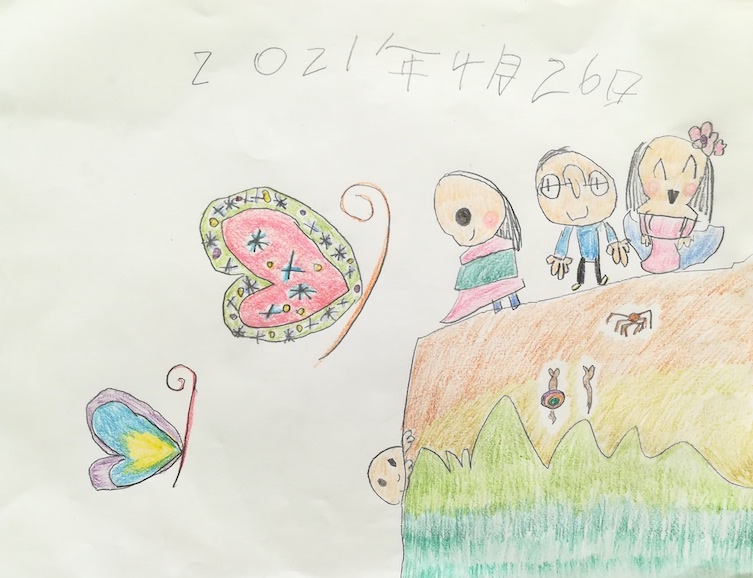 2021年4月26日